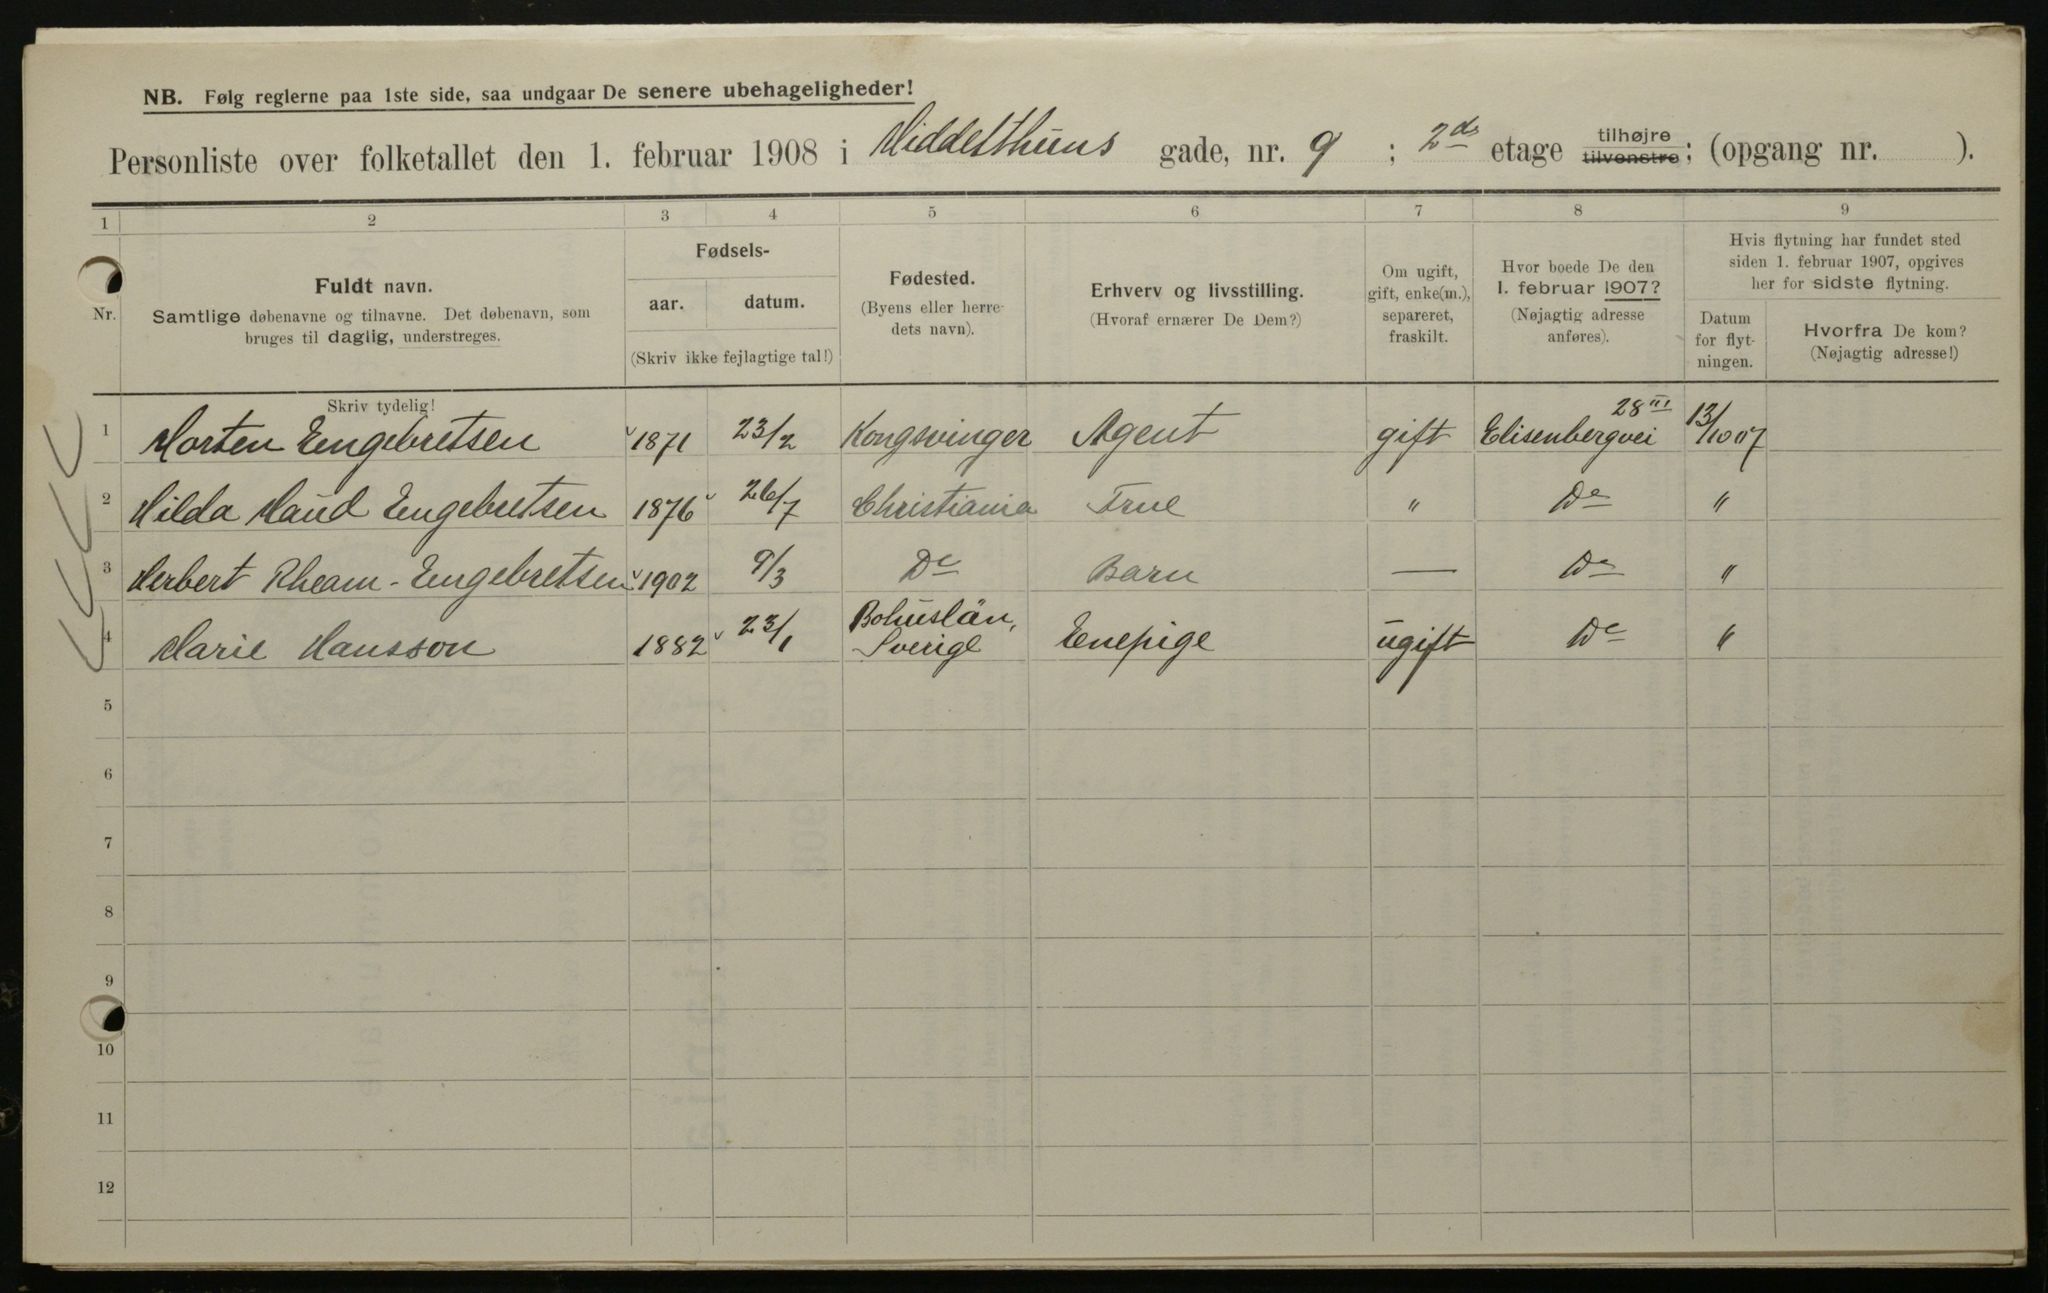 NB. Følg reglerne paa 1ste side, saa undgaar De senere ubehageligheder!
Personliste over folketallet den 1. februar 1908 i Middelthuns gade, nr. 9 ; 2den etage tilhøjre tilvenstre; (opgang nr. ).
1 2 3 4 5 6 7 8 9
Nr.
Fuldt navn.
Samtlige døbenavne og tilnavne. Det døbenavn, som
bruges til daglig, understreges.
Fødsels-
aar. datum.
(Skriv ikke fejlagtige tal!)
Fødested.
(Byens eller herre-
dets navn).
Erhverv og livsstilling.
(Hvoraf ernærer De Dem?)
Om ugift,
gift, enke(m.),
separeret,
fraskilt.
Hvor boede De den
1. februar 1907?
(Nøjagtig adresse
anføres).
Hvis flytning har fundet sted
siden 1. februar 1907, opgives
her for sidste flytning.
Datum
for flyt-
ningen.
Hvorfra De kom?
(Nøjagtig adresse!)
Skriv tydelig!
1 Morten Engebretsen 1871 23/2 Kongsvinger Agent gift Elisenbergvei 28 III 13/10 07
2 Hilda Maud Engebretsen 1876 26/7 Christiania Frue " Do "
3 Herbert Rheam-Engebretsen 1902 9/3 Do Barn — Do "
4 Marie Hansson 1882 23/1 Bohuslän, Sverige Enepige ugift Do "
5
6
7
8
9
10
11
12